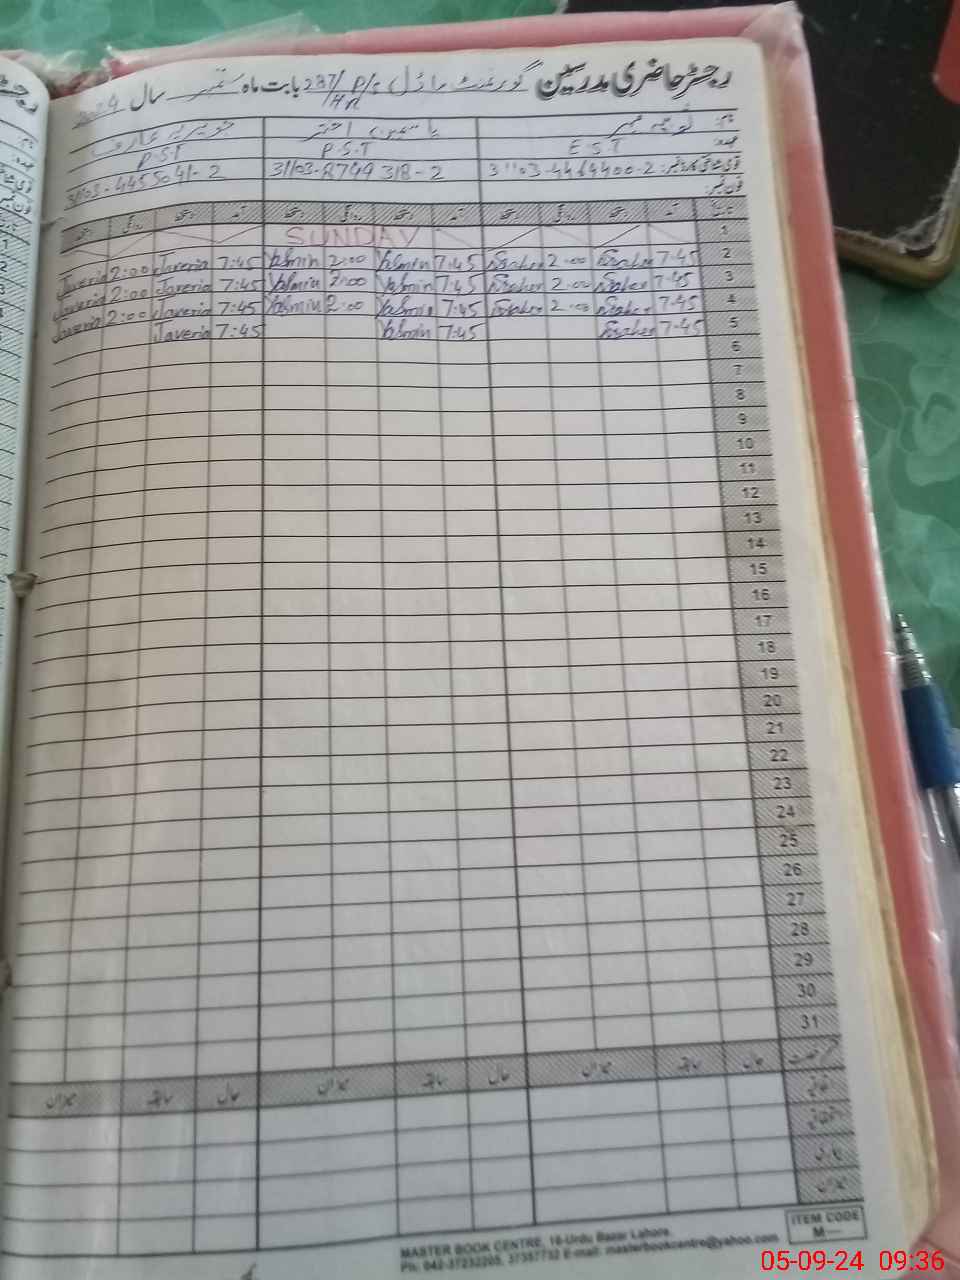 رجسٹر حاضری مدرسین گورنمنٹ ماڈل P/S 287/HR بابت ماہ ستمبر سال 2024
نام: یاسمین اختر جویریہ عارف
عہدہ: E.S.T P.S.T P.S.T
قومی شناختی کارڈ نمبر: 31103-4464400-2 31103-8744318-2 31103-4455041-2
فون نمبر:
تاریخ آمد دستخط روانگی دستخط آمد دستخط روانگی دستخط آمد دستخط روانگی دستخط
1 SUNDAY
2 7-45 2-00 7:45 Yasmin 2:00 Yasmin 7:45 Javeria 2:00 Javeria
3 7-45 2-00 7:45 Yasmin 2:00 Yasmin 7:45 Javeria 2:00 Javeria
4 7-45 2-00 7:45 Yasmin 2:00 Yasmin 7:45 Javeria 2:00 Javeria
5 7-45 7:45 Yasmin 7:45 Javeria
6
7
8
9
10
11
12
13
14
15
16
17
18
19
20
21
22
23
24
25
26
27
28
29
30
31
حال سابقہ میزان حال سابقہ میزان حال سابقہ میزان
اتفاقیہ
بیماری
میزان
ITEM CODE
M—
MASTER BOOK CENTRE, 18-Urdu Bazar Lahore.
Ph: 042-37232205, 37357732 E-mail: masterbookcentre@yahoo.com
05-09-24 09:36